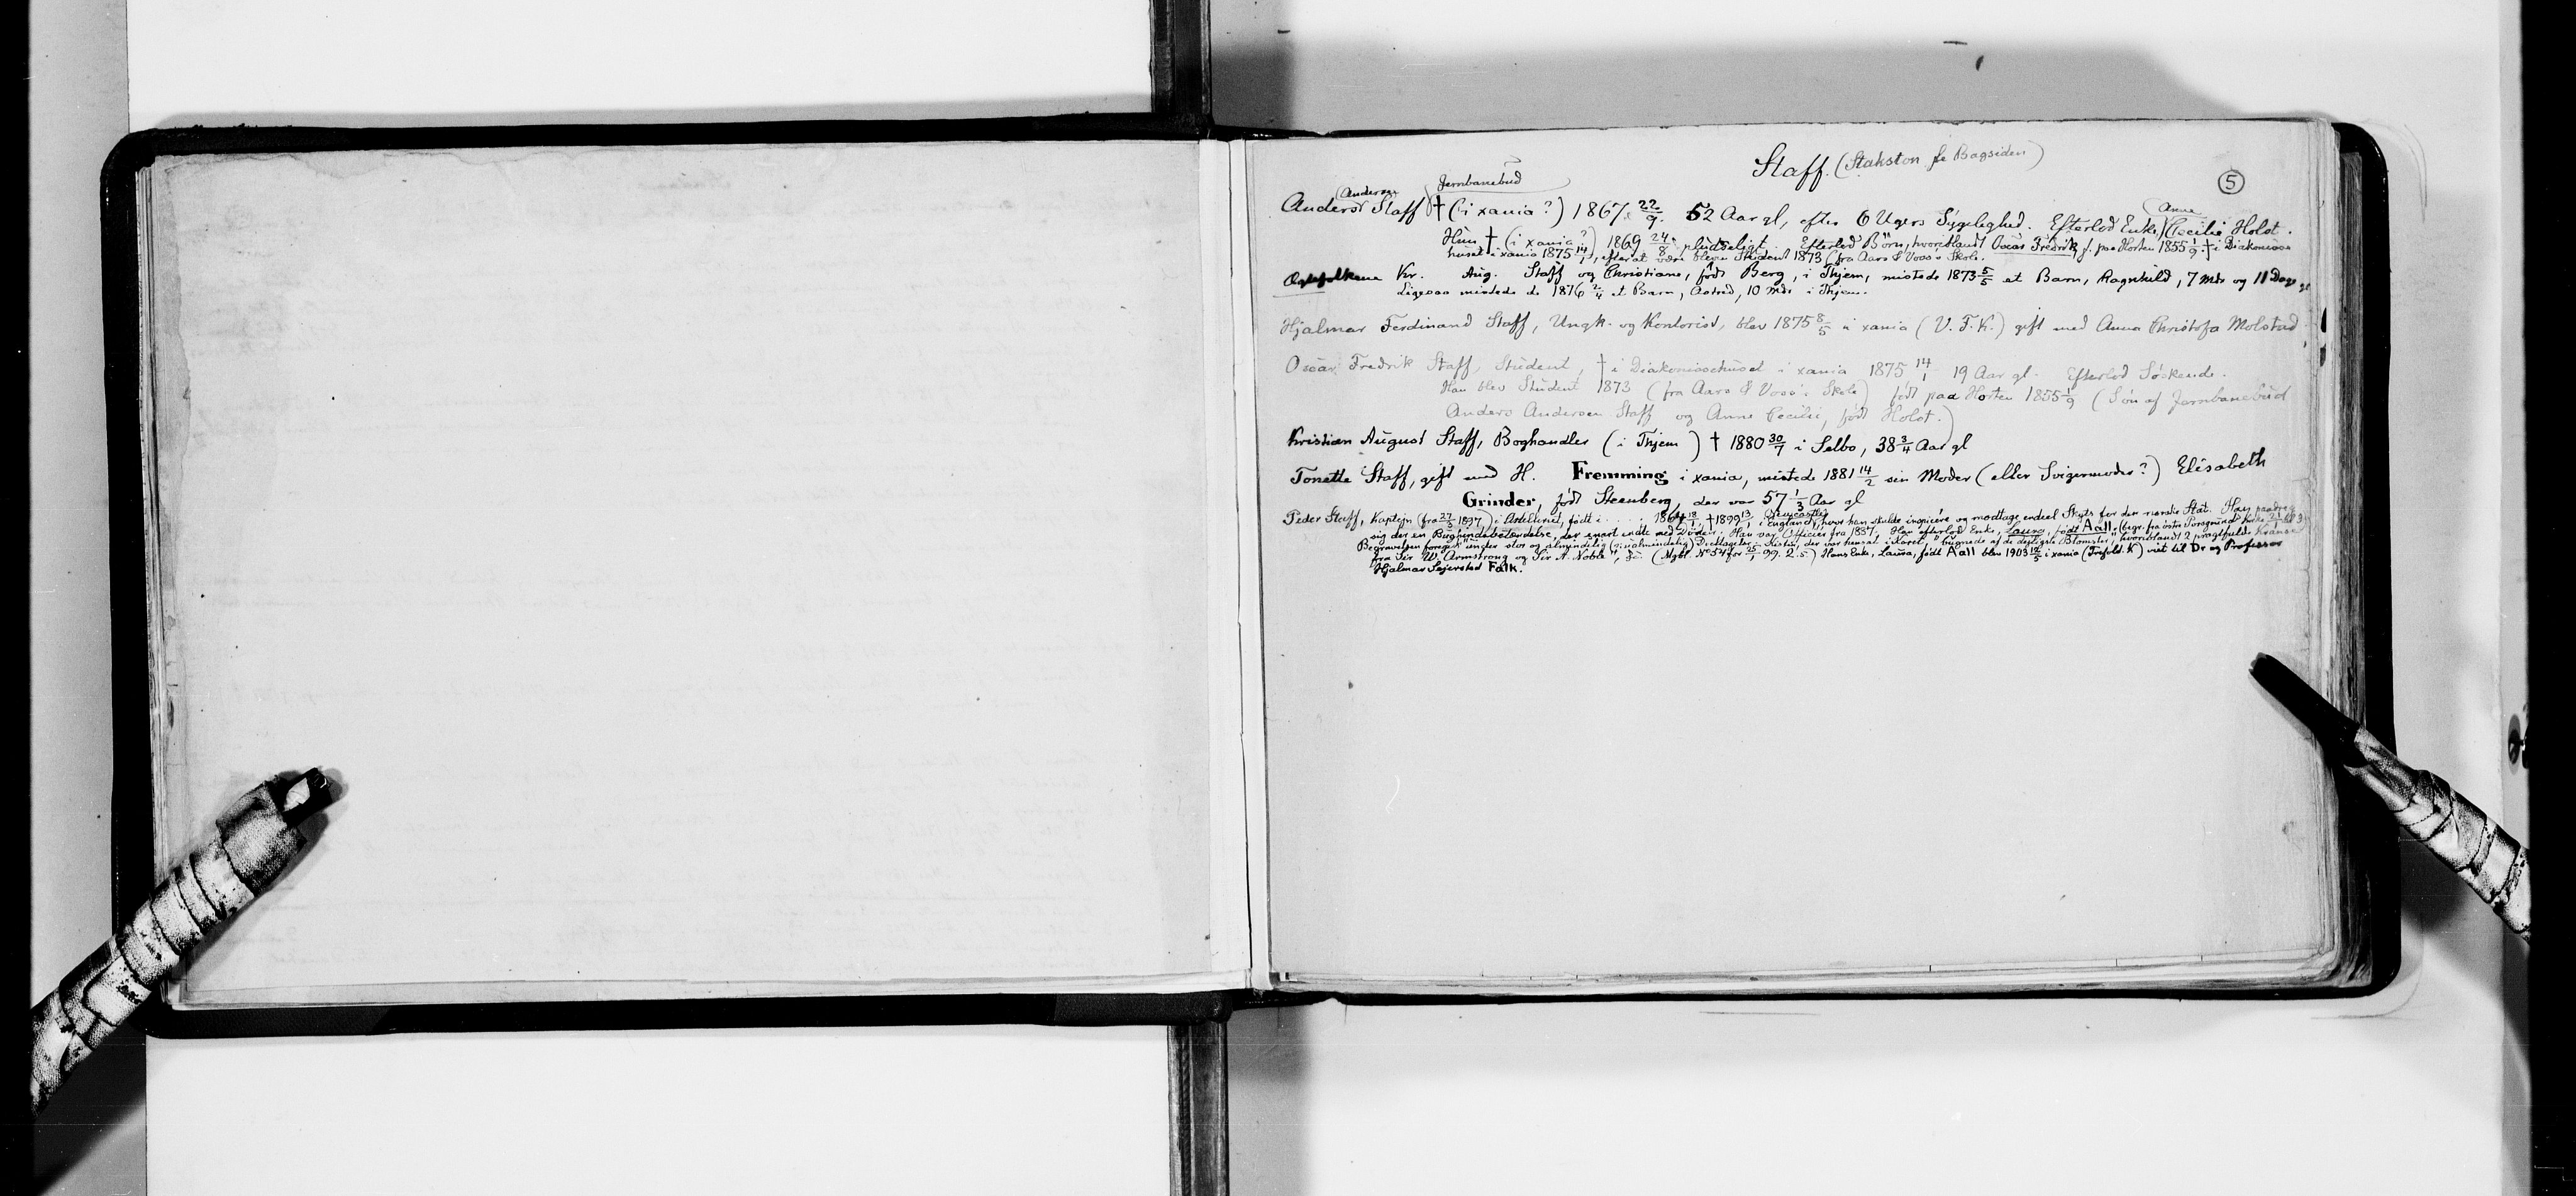 Staff. (Stakston se Bagsiden)
5
Andersen Jernbanebud
Anders Staff † (i xania?) 1867 22/9. 52 Aar gl, efter 6 Ugers Sygelighed. Efterlod Enke, Anne Cecilie Holst.
Hun † (i xania?) 1869 24/8 pludseligt. Efterlod Börn, hvoriblandt Oscar Fredrik, f. paa Horten 1855 1/9. † i Diakonisse
huset i xania 1875 14/1, efter at være bleven Student 1873 (fra Aars & Voss's Skole.
Ægtefolkene Kr. Aug. Staff og Christiane, født Berg, i Thjem, mistede 1873 5/5 et Barn, Ragnhild, 7 Mdr og 11 Dage gl
Ligesaa mistede de 1876 2/4 et Barn, Astrid, 10 Mdr i Thjem.
Hjalmar Ferdinand Staff, Ungk. og Kontorist, blev 1875 8/5 i xania (V. F. K.) gift med Anna Christofa Molstad
Oscar Fredrik Staff, Student, † i Diakonissehuset i xania 1875 14/1 19 Aar gl. Efterlod Söskende.
Han blev Student 1873 (fra Aars & Voss's Skole) født paa Horten 1855 1/9 (Sön af Jernbanebud
Anders Andersen Staff og Anne Cecilie, født Holst.)
Kristian August Staff, Boghandler (i Thjem) † 1880 30/7 i Selbo, 38 3/4 Aar gl
Tonette Staff, gift med H. Fremming i xania, mistede 1881 14/2 sin Moder (eller Svigermoder?) Elisabeth
Grinder, født Steenberg, der var 57 1/3 Aar gl
Peder Staff, Kaptejn (fra 27/3 1897) i Artilleriet, født i . . . . . 1864 18/1, † 1899 13/1 i England (Newcastle), hvor han skulde inspicére og modtage endeel Skyts for den norske Stat. Han paadrog
sig der en Bughindebetændelse, der snart endte med Döden. Han var Officier fra 1887. Han efterlod Enke, Laura, født Aall, (begr. fra östre Porsgrund Kirke 21/1 Kl 3
Begravelsen foregik "under stor og almyndelig (: ualmindelig) Deeltagelse. Kisten, der var hensat i Koret, "bugnede af de dejligste Blomster, hvoriblandt 2 pragtfulde Kranse
fra Sir W. Armstrong og Sir A. Noble", (Mgbl. No 54 for 25/1 99. 2. s) Hans Enke, Laura, født Aall blev 1903 12/5 i xania (Trefold. K) viet til Dr og Professor
Hjalmar Sejersted Falk.